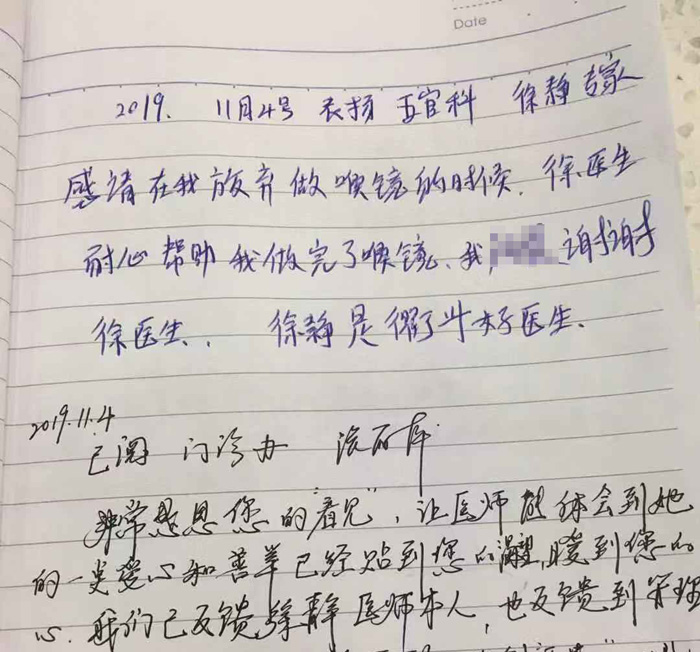 Date
2019. 11月4号 表扬 五官科 徐静 专家
感谢在我放弃做喉镜的时候. 徐医生
耐心帮助我做完了喉镜、我, 谢谢
徐医生., 徐静是衢州好医生.
2019.11.4
已阅 门诊办
非常感恩您的“看见”, 让医师能体会到她
的一片爱心和善举已经贴到您的, 暖到您的
心. 我们已反馈徐静医师本人, 也反馈到